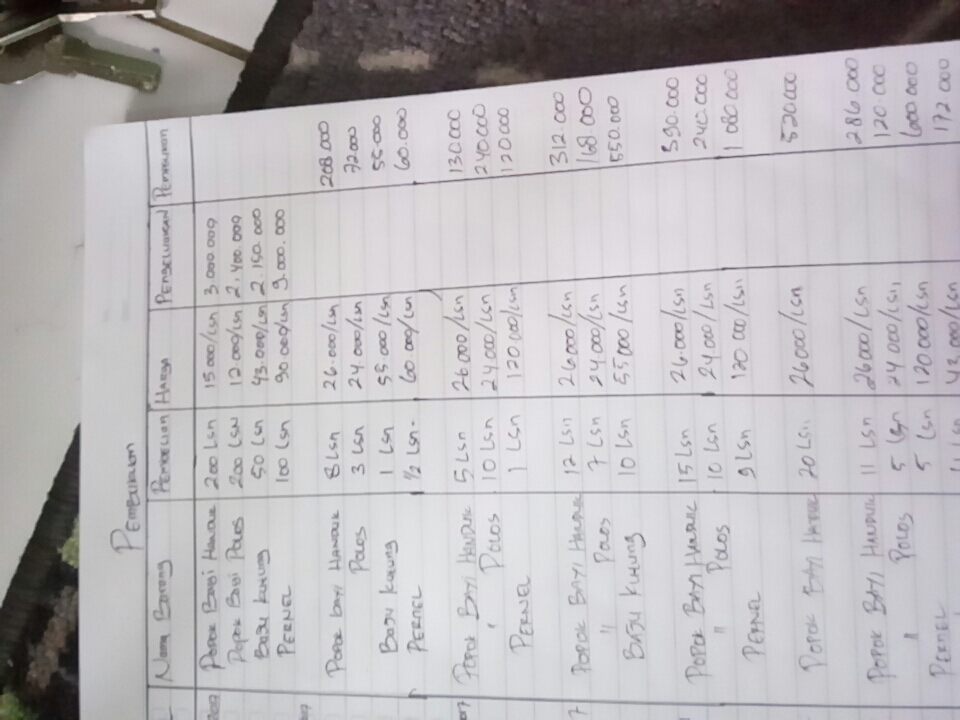 PEMBUKUAN
Nama Barang Pembelian Harga Pengeluaran Pembukuan
Popok Bayi Handuk 200 Lsn 15000/Lsn 3.000.000
Popok Bayi Polos 200 LSN 12.000/Lsn 2.400.000
Baju Kuning 50 Lsn 43.000/Lsn 2.150.000
PERNEL 100 Lsn 90.000/Lsn 9.000.000
Popok Bayi Handuk 8 Lsn 26.000/Lsn 208.000
Polos 3 Lsn 24.000/Lsn 72.000
Baju Kuning 1 Lsn 55.000/Lsn 55.000
PERNEL 1/2 Lsn 60.000/Lsn 60.000
POPOK BAYI HANDUK 5 Lsn 26000/Lsn 130.000
" Polos 10 Lsn 24.000/Lsn 240.000
PERNEL 1 Lsn 120000/Lsn 120000
POPOK BAYI HANDUK 12 Lsn 26000/Lsn 312.000
" Polos 7 Lsn 24000/Lsn 168.000
BAJU KUNING 10 Lsn 55000/Lsn 550.000
POPOK BAYI HANDUK 15 Lsn 26.000/Lsn 390.000
" Polos 10 Lsn 24000/Lsn 240.000
PERNEL 9 Lsn 120 000/Lsn 1 080 000
POPOK BAYI HANDUK 20 Lsn 26000/Lsn 520.000
POPOK BAYI HANDUK 11 Lsn 26000/Lsn 286.000
" Polos 5 Lsn 24 000/Lsn 120.000
PERNEL 5 Lsn 120000/Lsn 600.000
43.000 172 000